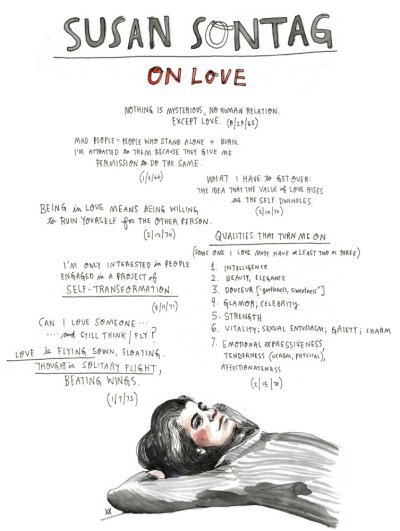 SUSAN SONTAG
ON LOVE
NOTHING IS MYSTERIOUS, NO HUMAN RELATION.
EXCEPT LOVE. (8/29/65)
MAD PEOPLE = PEOPLE WHO STAND ALONE + BURN.
I'M ATTRACTED to THEM BECAUSE THEY GIVE ME
PERMISSION to DO THE SAME.
WHAT I HAVE to GET OVER:
THE IDEA THAT THE VALUE of LOVE RISES
as THE SELF DWINDLES.
(2/10/70)
BEING in LOVE MEANS BEING WILLING
to RUIN YOURSELF for THE OTHER PERSON.
(2/12/70)
QUALITIES THAT TURN ME ON
(SOME ONE I LOVE MUST HAVE at LEAST TWO or THREE)
1. INTELLIGENCE
2. BEAUTY, ELEGANCE
3. DOUCEUR ["gentleness, sweetness"]
4. GLAMOR; CELEBRITY
5. STRENGTH
6. VITALITY; SEXUAL ENTUSIASM; GAIETY; CHARM
7. EMOTIONAL EXPRESSIVENESS,
TENDERNESS (VERBAL, PHYSICAL),
AFFECTIONATENESS
(2/15/70)
I'M ONLY INTERESTED in PEOPLE
ENGAGED in A PROJECT of
SELF-TRANSFORMATION.
CAN I LOVE SOMEONE....
.... and STILL THINK / FLY?
LOVE is FLYING SOWN, FLOATING.
THOUGHT is SOLITARY FLIGHT,
BEATING WINGS.